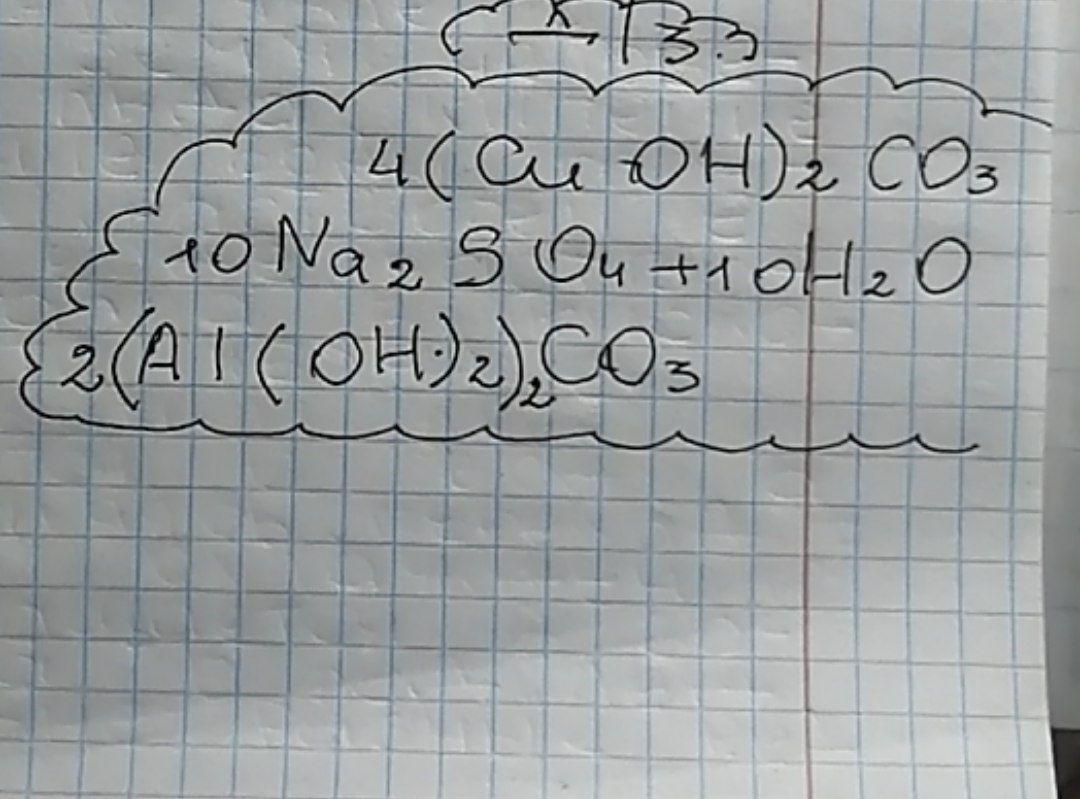 4(CuOH)2CO3
10Na2SO4+10H2O
2(Al(OH)2)2CO3